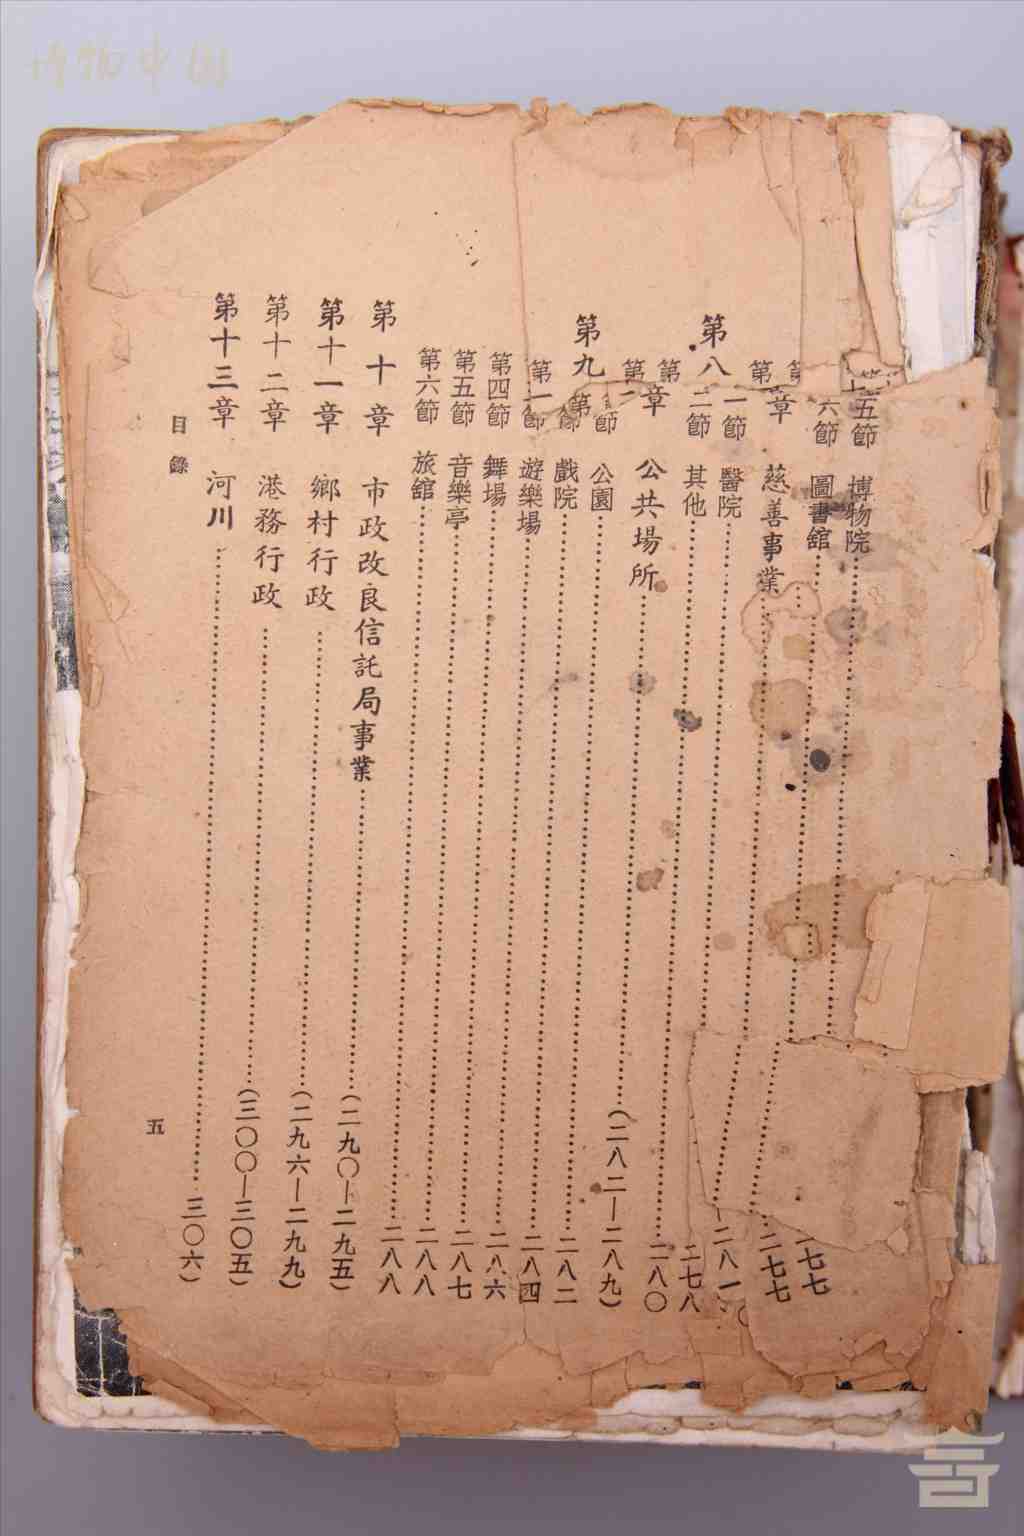 第五節 博物院……二七七
第六節 圖書舘……二七七
第八章 慈善事業……二八一
第一節 醫院……二七八
第二節 其他……二八〇
第九章 公共場所……(二八二—二八九)
節 公園……二八二
第節 戲院……二八四
第節 遊樂場……二八六
第四節 舞場……二八七
第五節 音樂亭……二八八
第六節 旅舘……二八八
第十章 市政改良信託局事業……(二九〇—二九五)
第十一章 鄉村行政……(二九六—二九九)
第十二章 港務行政……(三〇〇—三〇五)
第十三章 河川……三〇六)
目錄 五
博物中国